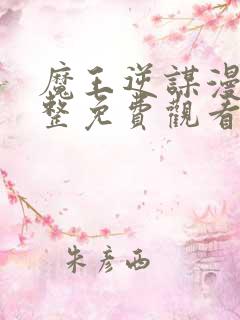 魔王逆謀漫
整免費觀看
朱彥西